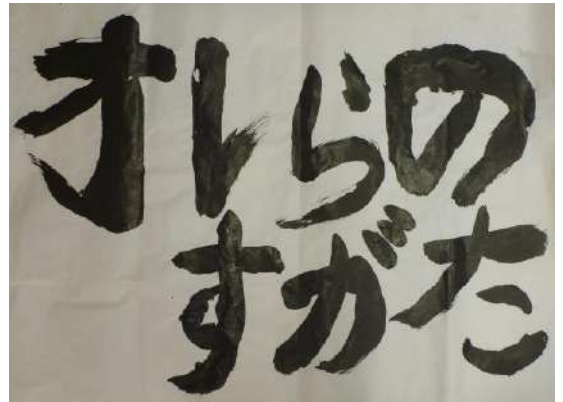 オレらの
すがた